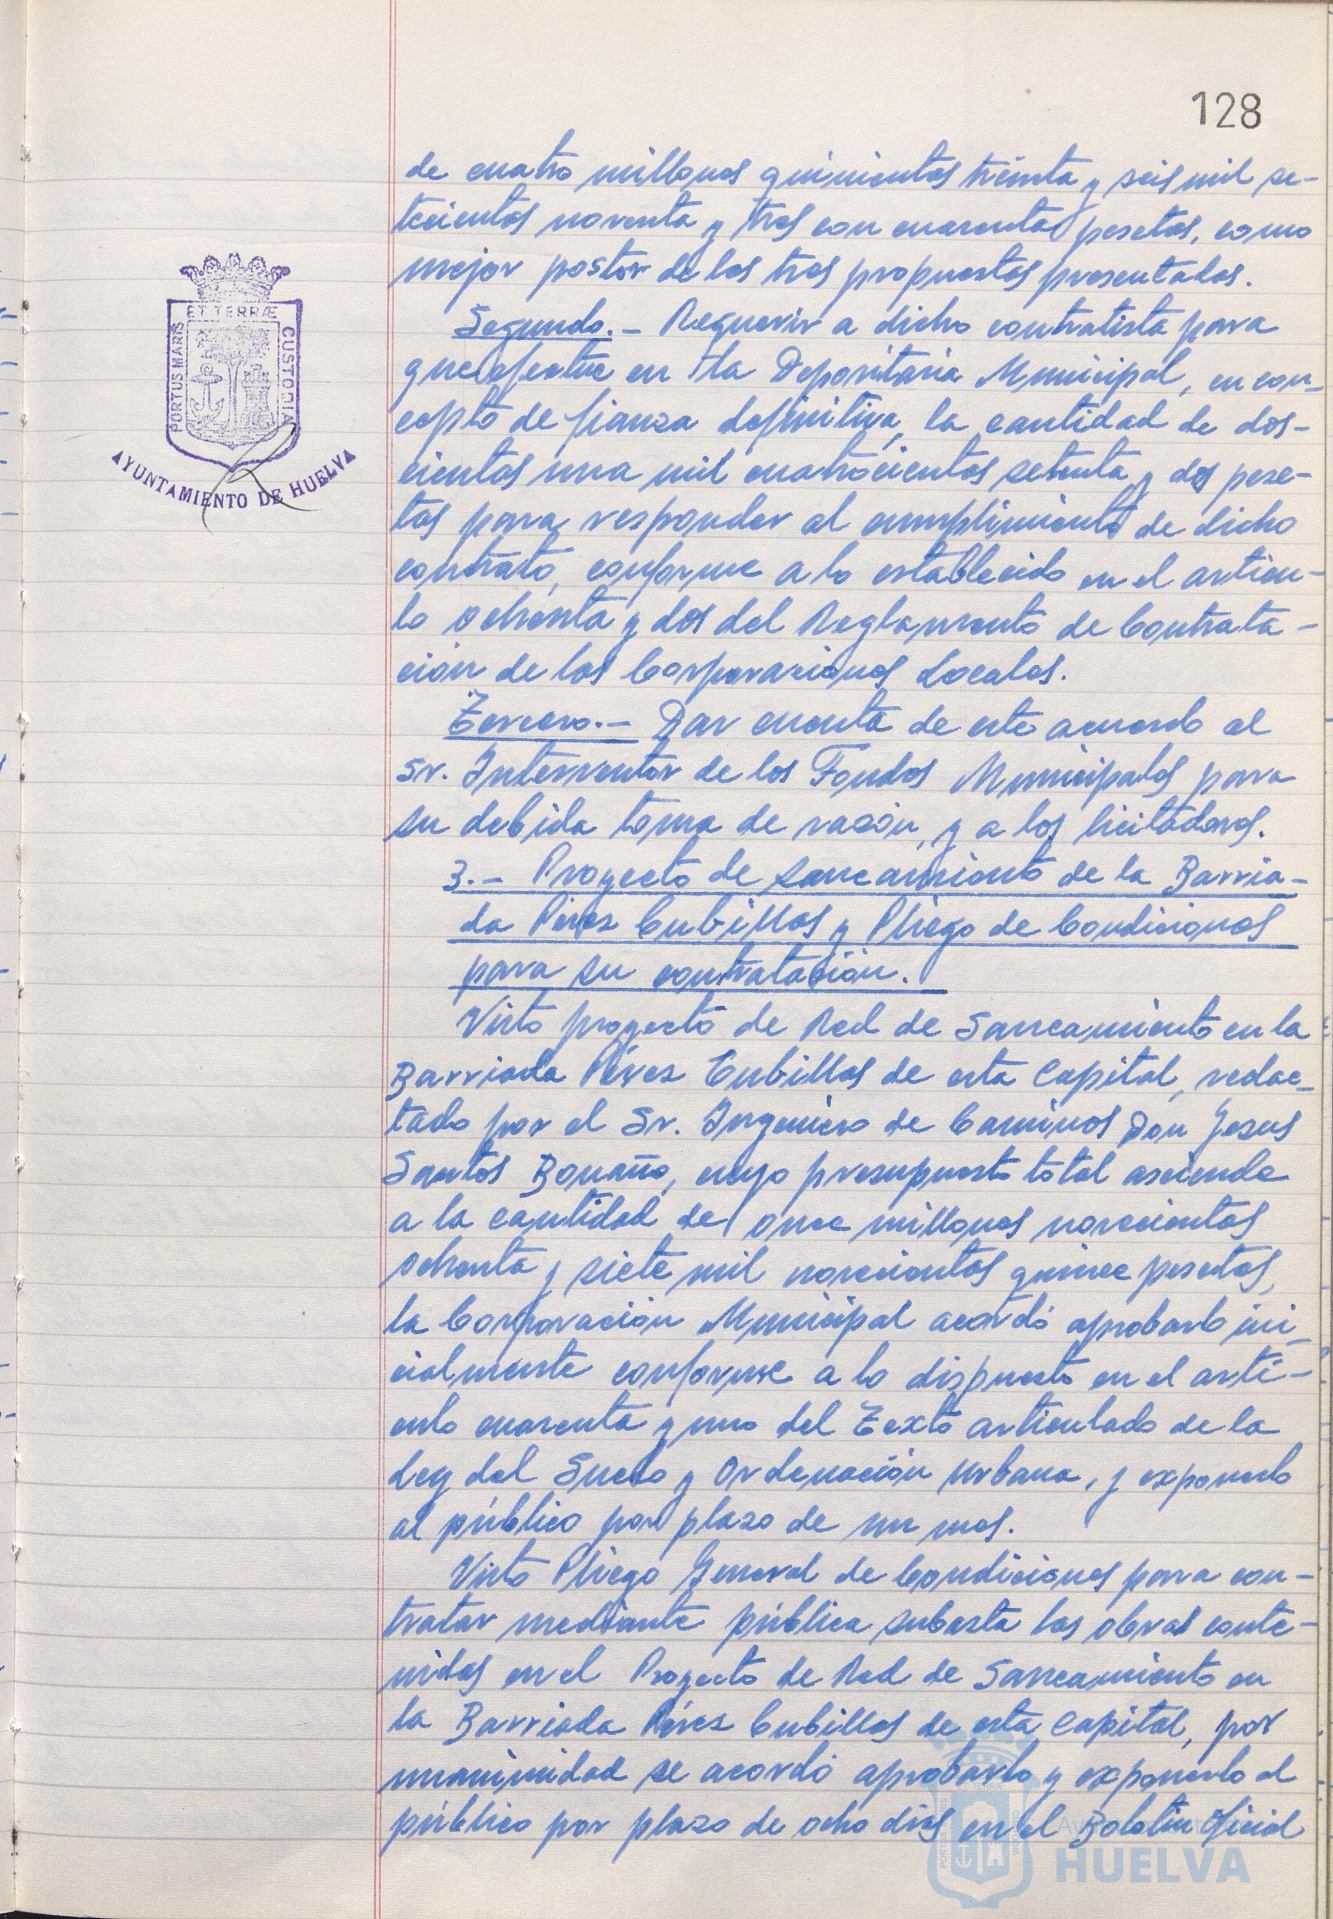 128
de cuatro millones quinientas treinta y seis mil se-
tecientas noventa y tres con cuarenta pesetas, como
mejor postor de las tres propuestas presentadas.
Segundo.- Requerir a dicho contratista para
que efectue en la Depositaria Municipal, en con-
cepto de fianza definitiva, la cantidad de dos-
cientas una mil cuatrocientas setenta y dos pese-
tas para responder al cumplimiento de dicho
contrato, conforme a lo establecido en el articu-
lo ochenta y dos del Reglamento de Contrata-
ción de las Corporaciones Locales.
Tercero.- Dar cuenta de este acuerdo al
Sr. Interventor de los Fondos Municipales para
su debida toma de razón, y a los licitadores.
3.- Proyecto de saneamiento de la Barria-
da Pérez Cubillas y Pliego de Condiciones
para su contratación.
Visto proyecto de Red de Saneamiento en la
Barriada Pérez Cubillas de esta Capital, redac-
tado por el Sr. Ingeniero de Caminos Don Jesus
Santos Bonaño, cuyo presupuesto total asciende
a la cantidad de once millones novecientas
ochenta y siete mil novecientas quince pesetas,
la Corporación Municipal acordó aprobarlo ini-
cialmente conforme a lo dispuesto en el artí-
culo cuarenta y uno del Texto articulado de la
Ley del Suelo y Ordenación Urbana, y exponerlo
al público por plazo de un mes.
Visto Pliego General de Condiciones para con-
tratar mediante pública subasta las obras conte-
nidas en el Proyecto de Red de Saneamiento en
la Barriada Pérez Cubillas de esta Capital, por
unanimidad se acordó aprobarlo y exponerlo al
público por plazo de ocho días en el Boletin Oficial
PORTUS MARIS ET TERRÆ CUSTODIA
AYUNTAMIENTO DE HUELVA
HUELVA